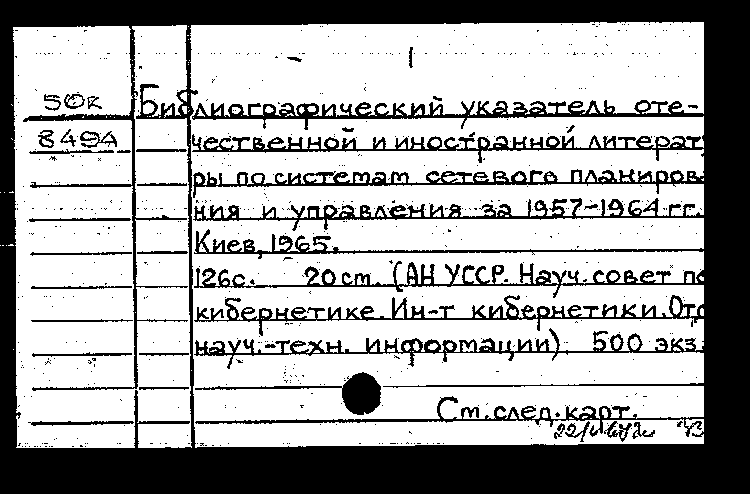 50к
8494
Библиографический указатель оте-
чественной и иностранной литерат
ры по системам сетевого планиров
ния и управления за 1957-1964 гг.
Киев, 1965.
126с. 20 cm. (АН УССР. Науч. совет по
кибернетике. Ин-т кибернетики. Отд
науч.-техн. информации). 500 экз.
Ст. след. карт.